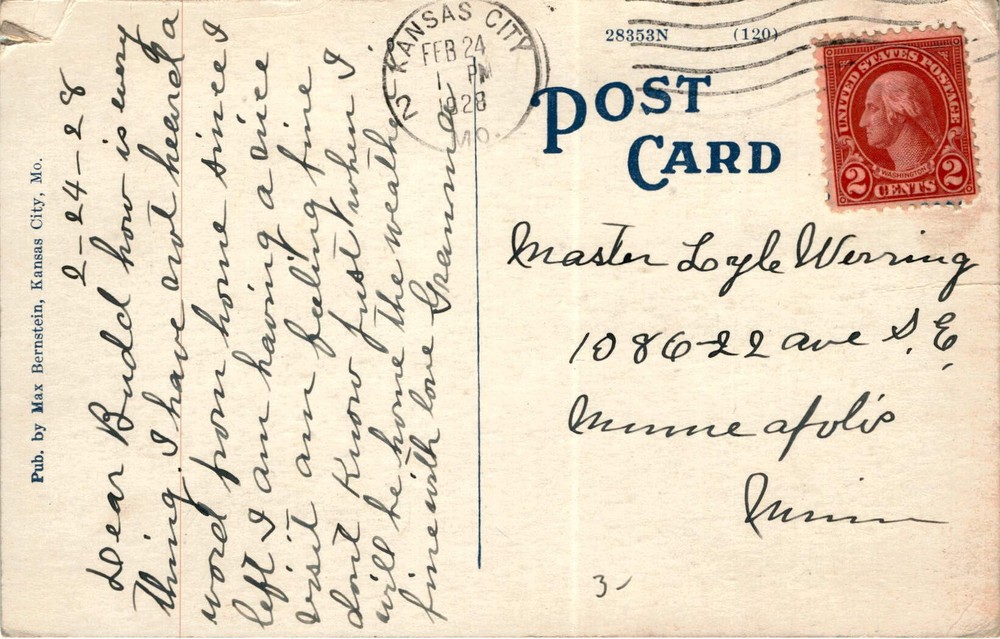 2-24-28
Dear Budd how is every
thing. I have not heard a
word from home since I
left I am having a nice
visit am feeling fine
dont know just when I
will be home the weather
fine with love Gramma
Pub. by Max Bernstein, Kansas City, Mo.
KANSAS CITY
2
FEB 24
1 PM
1928
MO.
28353N (120)
POST
CARD
UNITED STATES POSTAGE
WASHINGTON
2 CENTS 2
Master Loyle Werring
1086-22 ave S.E.
Minneapolis
Minn
3-